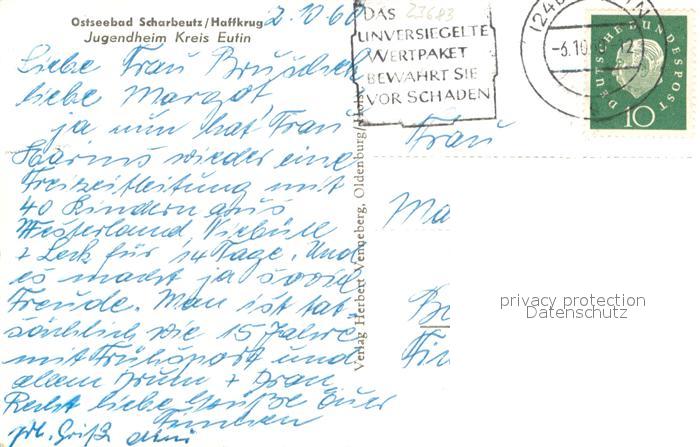 Ostseebad Scharbeutz/Haffkrug
Jugendheim Kreis Eutin
2.10.60
Liebe Frau
liebe Margot,
ja nun hat Frau
Harms wieder eine
Freizeitleitung mit
40 Kindern aus
Westerland, Niebüll
+ Leck für 14 Tage. Und
es macht ja soviel
Freude. Man ist tat-
sächlich wie 15 Jahre
mit Frühsport und
allem Drum + Dran
Recht liebe Grüße Euer
Finchen
Verlag Herbert Wenneberg, Oldenburg/Holst.
23683
DAS
UNVERSIEGELTE
WERTPAKET
BEWAHRT SIE
VOR SCHADEN
-3.10.
12
DEUTSCHE BUNDESPOST
10
Frau
Ma
privacy protection
Datenschutz